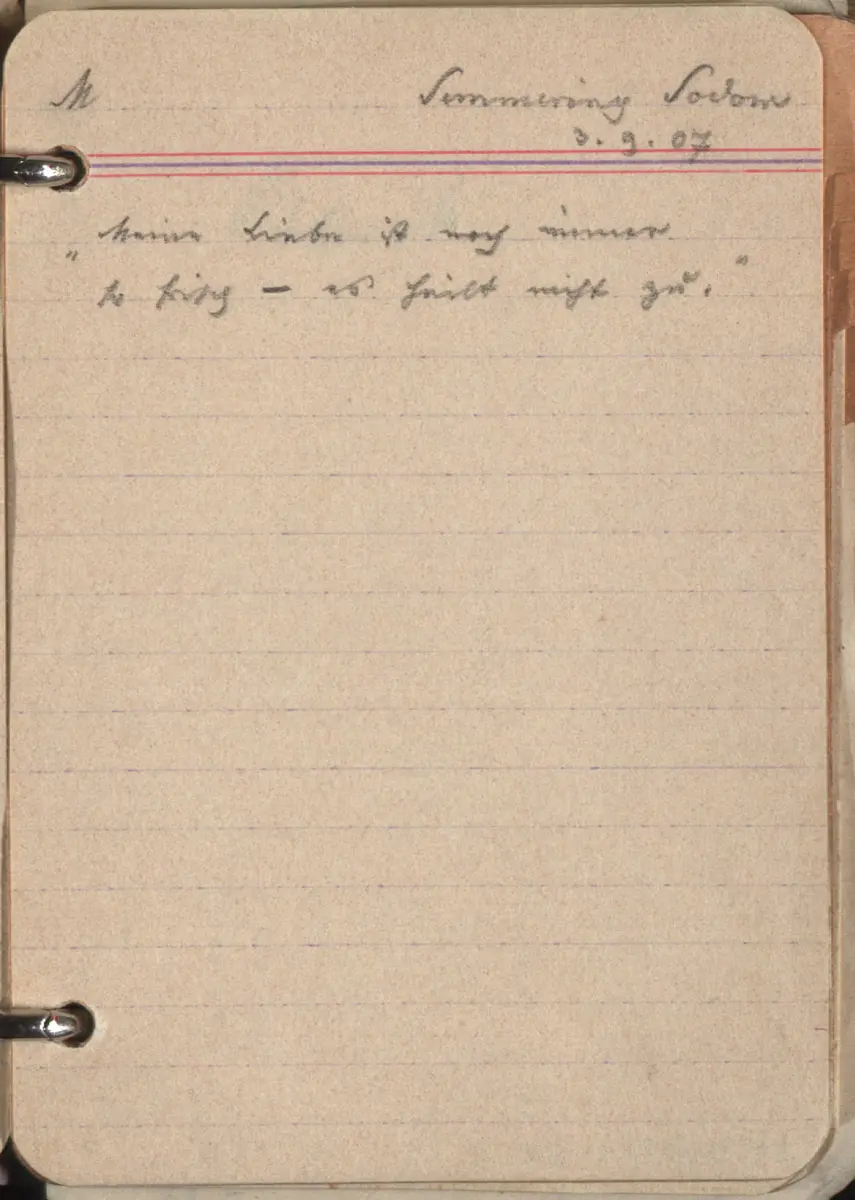 M Semmering Sodom
3. 9. 07
„Meine Liebe ist noch immer
so frisch – es heilt nicht zu."